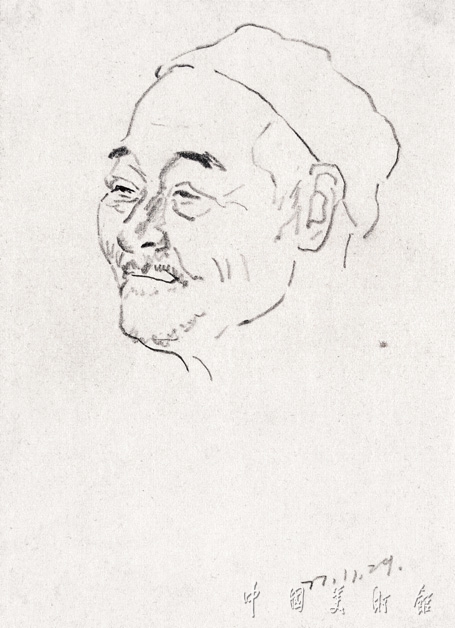 77.11.29.
中国美术馆